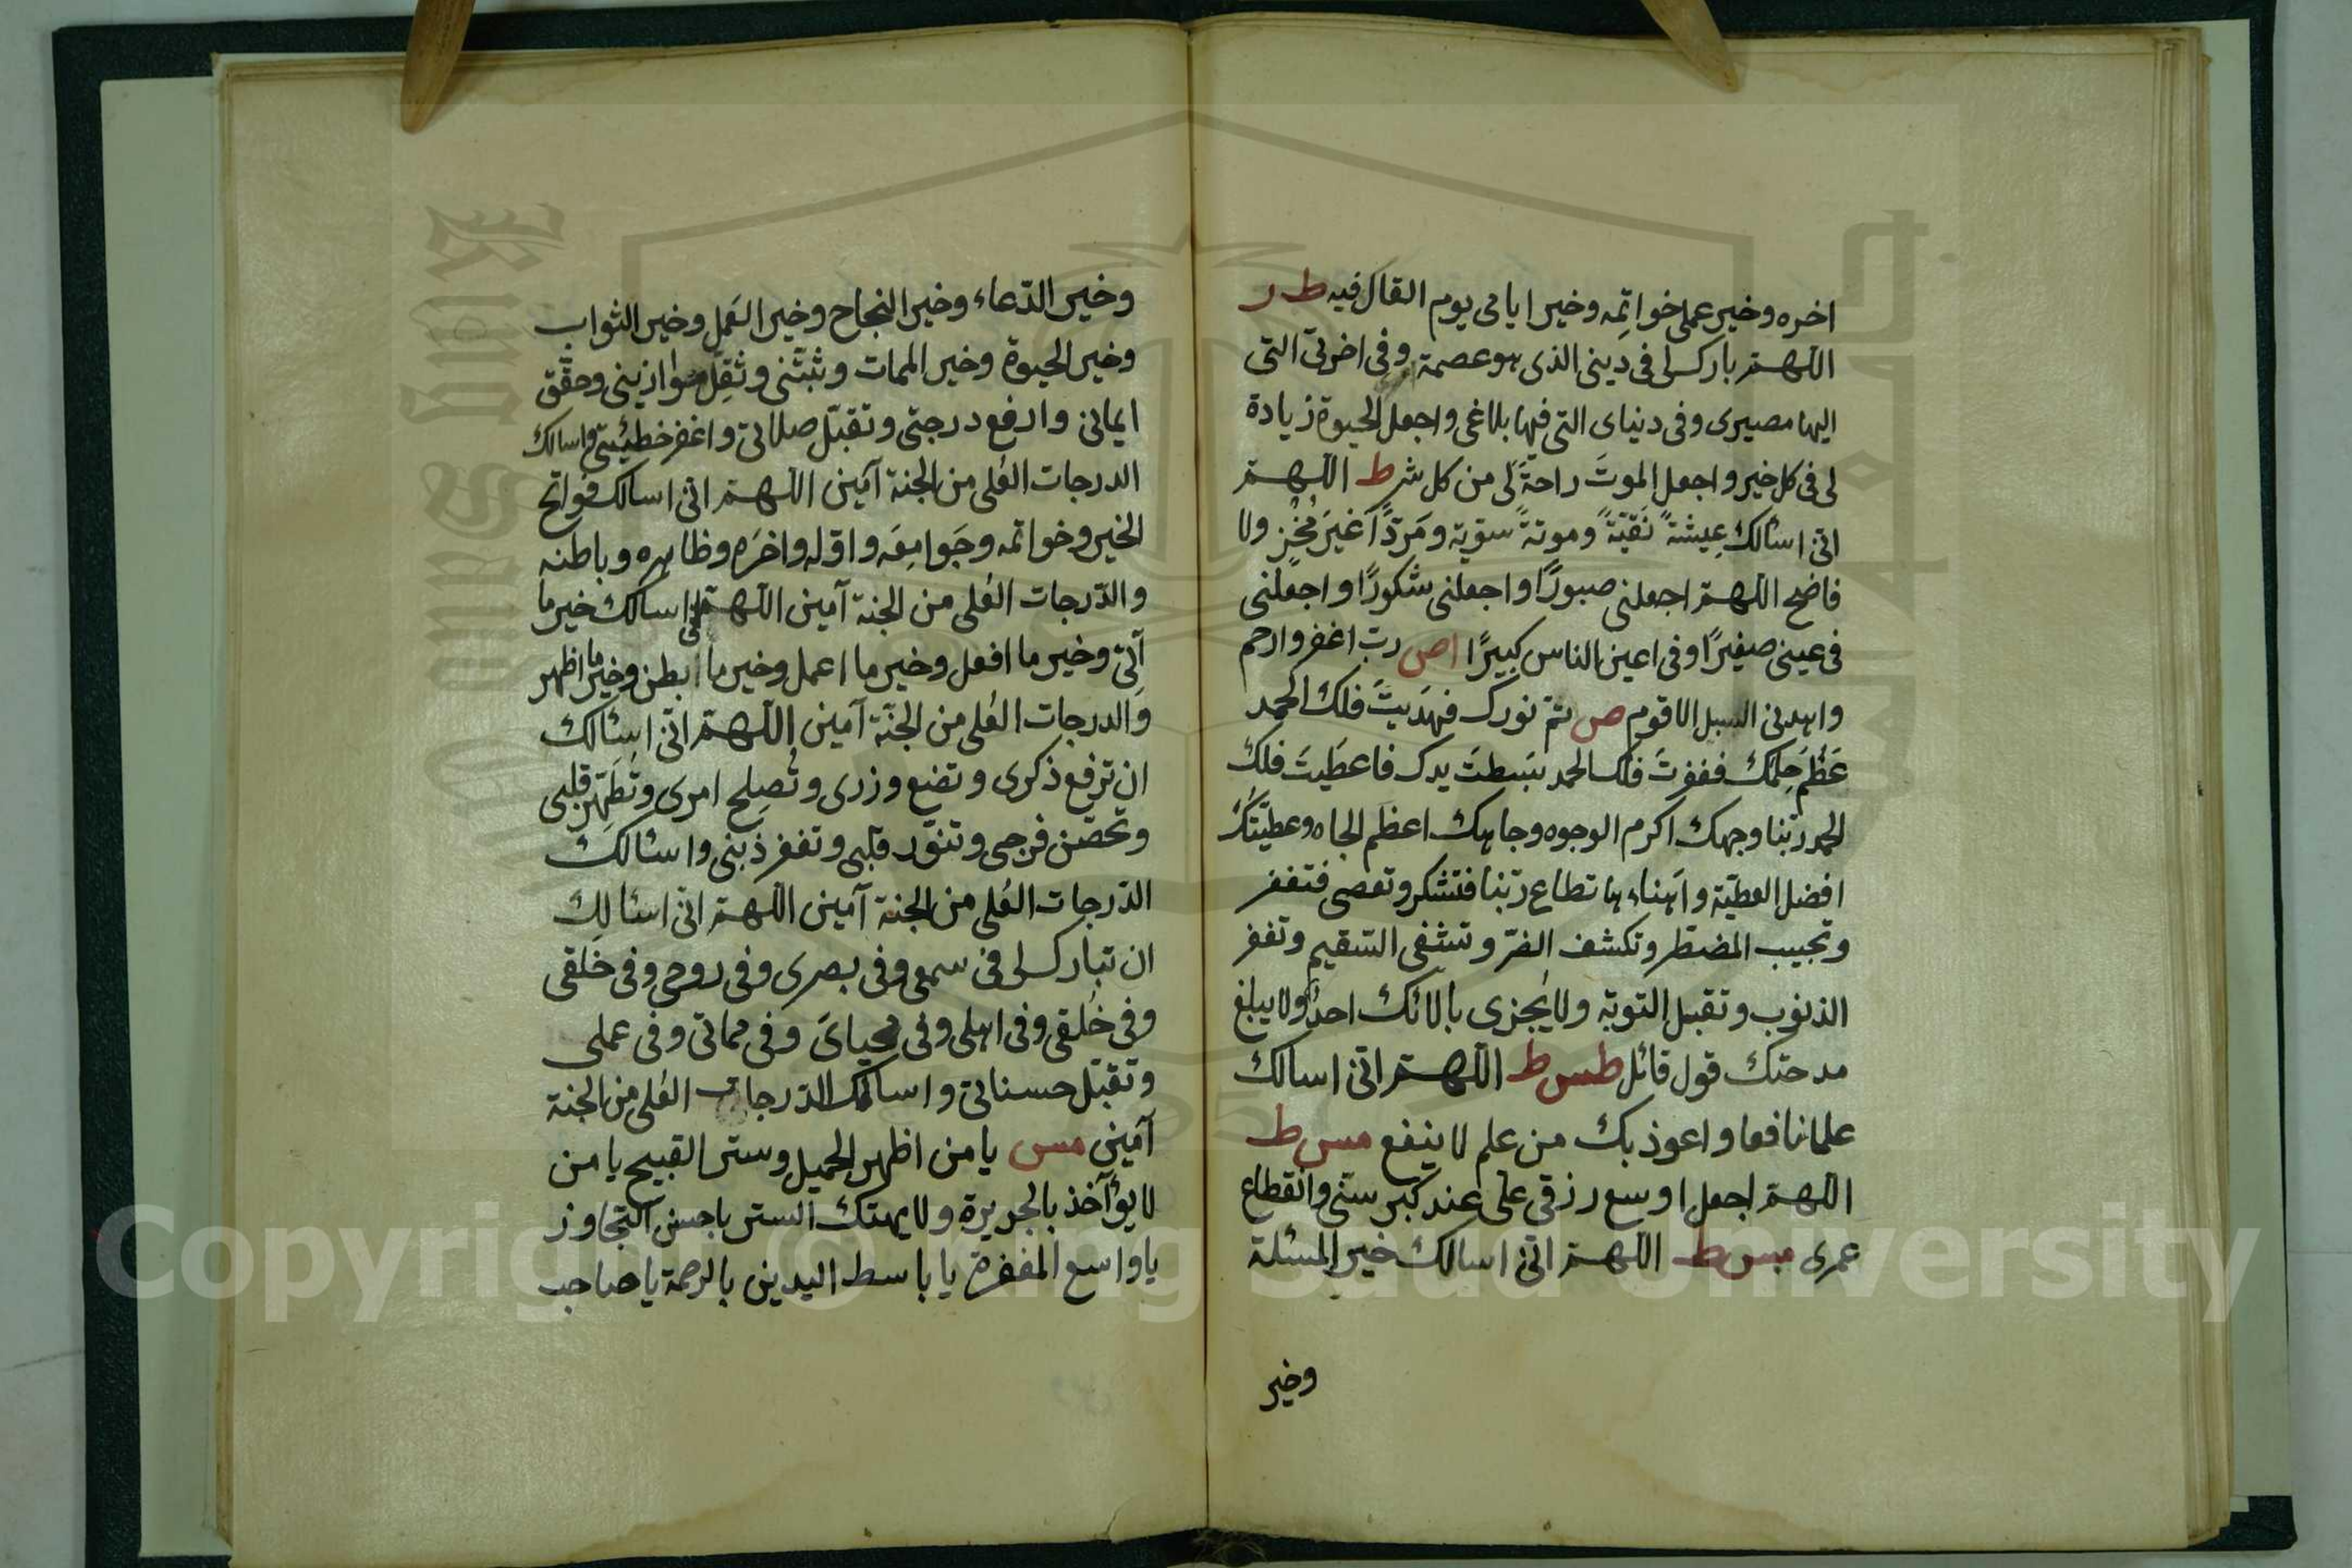 اخره وخير عملى خواتِمه وخير ايامى يوم القاك فيه ط ر
اللهم بارك لى فى دينى الذى هو عصمة امرى وفى اخرتى التى
اليها مصيرى وفى دنياى التى فيها بلاغى واجعل الحيوة زيادة
لى فى كل خير واجعل الموتَ راحةً لى من كل شر ط اللهم
انى اسئالك عِيشةً نَقيّةً وموتةً سوّية ومَردًّا غَيرَ مُخْزٍ ولا
فاضح اللهم اجعلنى صبورًا واجعلنى شكورًا واجعلنى
فى عينى صغيرًا وفى اعين الناس كبيرًا اص رب اغفر وارحم
واهدنى السبل الاقوم ص تم نورك فهدَيتَ فلك الحمد
عَظُمَ حِلمك فغفرتَ فلك الحمد بَسطتَ يدك فاعطَيتَ فلك
الحمد ربّنا وجهك اكرم الوجوه وجاهك اعظَم الجاه وعطيّتكَ
افضل العطيّة واَهناءها تطاع ربّنا فتشكر وتعصى فتغفر
وتجيب المضطر وتكشف الضّر وتشفى السّقيم وتغفر
الذنوب وتقبل التوبة ولا يُجزى بالائك احدٌ ولا يبلغ
مدحتك قول قائل طمس ط اللهم انى اسالك
علما نافعا واعوذ بك من علم لا ينفع مس ط
اللهم اجعل اوسع رزقى على عند كبر سنّى وانقطاع
عمرى مس ط اللهم انى اسالك خير المسئلة
وخير
وخير الدّعاء وخير النجاح وخير العَمل وخير الثواب
وخير الحيوة وخير الممات وثبّتنى وثَقِل موازينى وحقّق
ايمانى وارفع درجتى وتقبّل صلاتى واغفر خطيئتى واسالك
الدرجات العُلى من الجنة آمين اللهم انى اسالك فواتح
الخير وخواتمه وجَوامِعَه واوّله واخرَه وظاهره وباطنه
والدّرجات العُلى من الجنة آمين اللهم انى اسالك خير ما
آتِى وخير ما افعل وخير ما اعمل وخير ما ابطن وخير ما اظهر
والدرجات العُلى من الجنّة آمين اللهم انّى اسئالك
ان ترفع ذكرى وتضع وزرى وتُصلِح امرى وتُطَهّر قلبى
وتحصّن فرجى وتنوّر قلبى وتغفر ذنبى واسئالك
الدّرجات العُلى من الجنة آمين اللهم انى اسئالك
ان تبارك لى فى سمعى وفى بصرى وفى روحى وفى خَلقى
وفى خُلقى وفى اهلى وفى محياىَ وفى مماتى وفى عملى
وتقبّل حسناتى واسالك الدّرجات العُلى من الجنة
آمين مس يا من اظهر الجميل وستر القبيح يا من
لا يؤآخذ بالجريرة ولا يهتك الستر يا حسن التجاوز
يا واسع المغفرة يا باسط اليدين بالرحمة يا صاحب
Copyright © King Saud University